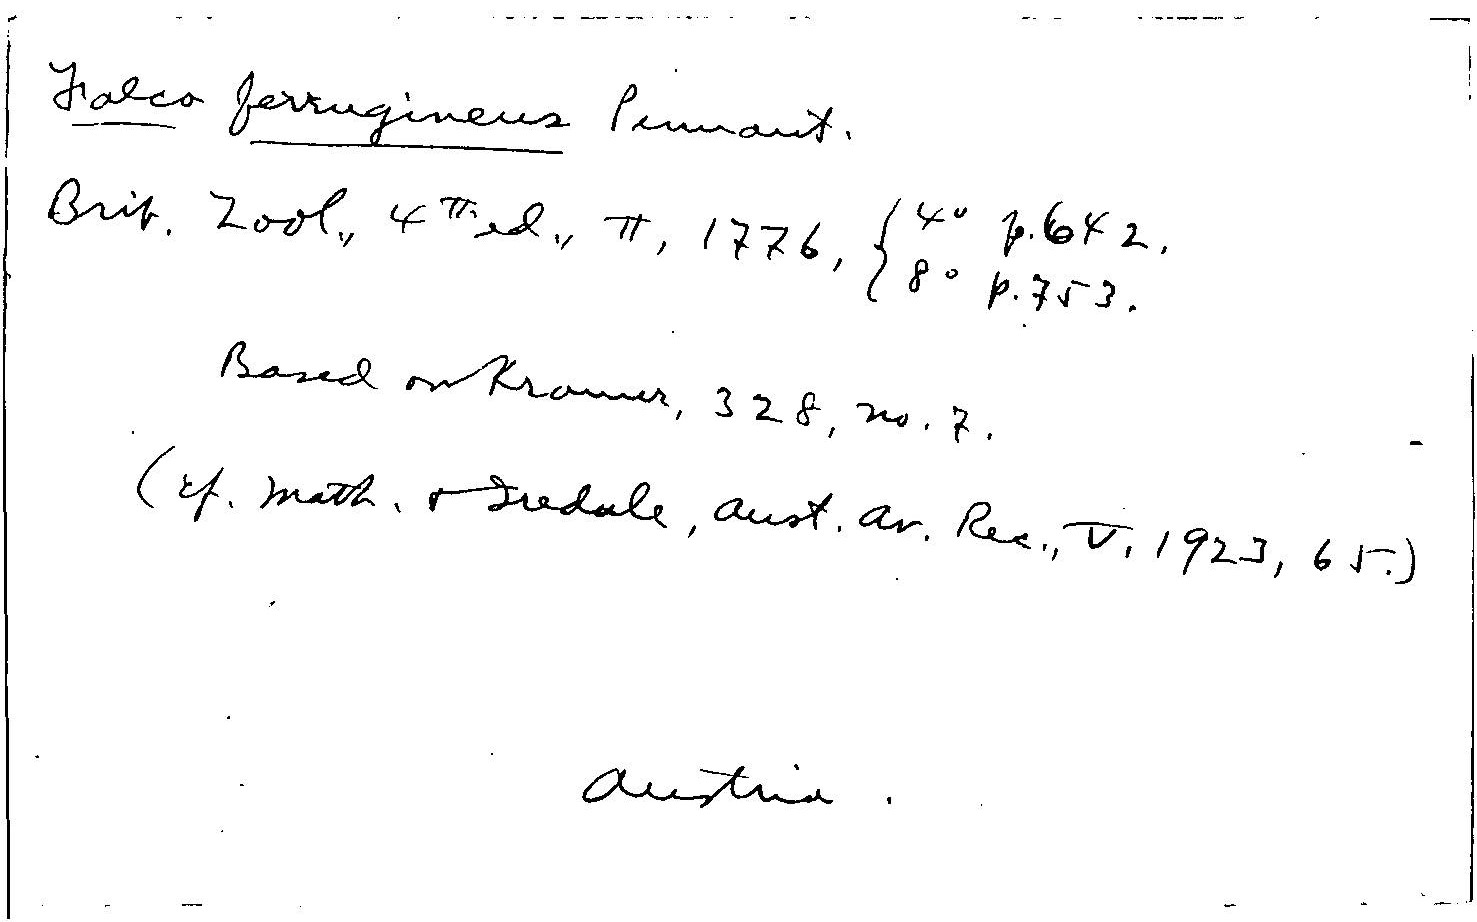 Falco ferrugineus Pennant.
Brit. Zool., 4th ed., II, 1776, { 4° p.642.
8° p.753.
Based on Kramer, 328, no. 7.
(cf. Math. & Iredale, Aust. Av. Rec., V, 1923, 65.)
Austria.